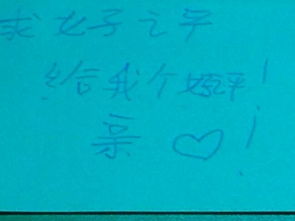 求好评
给我个好评!
亲♡!